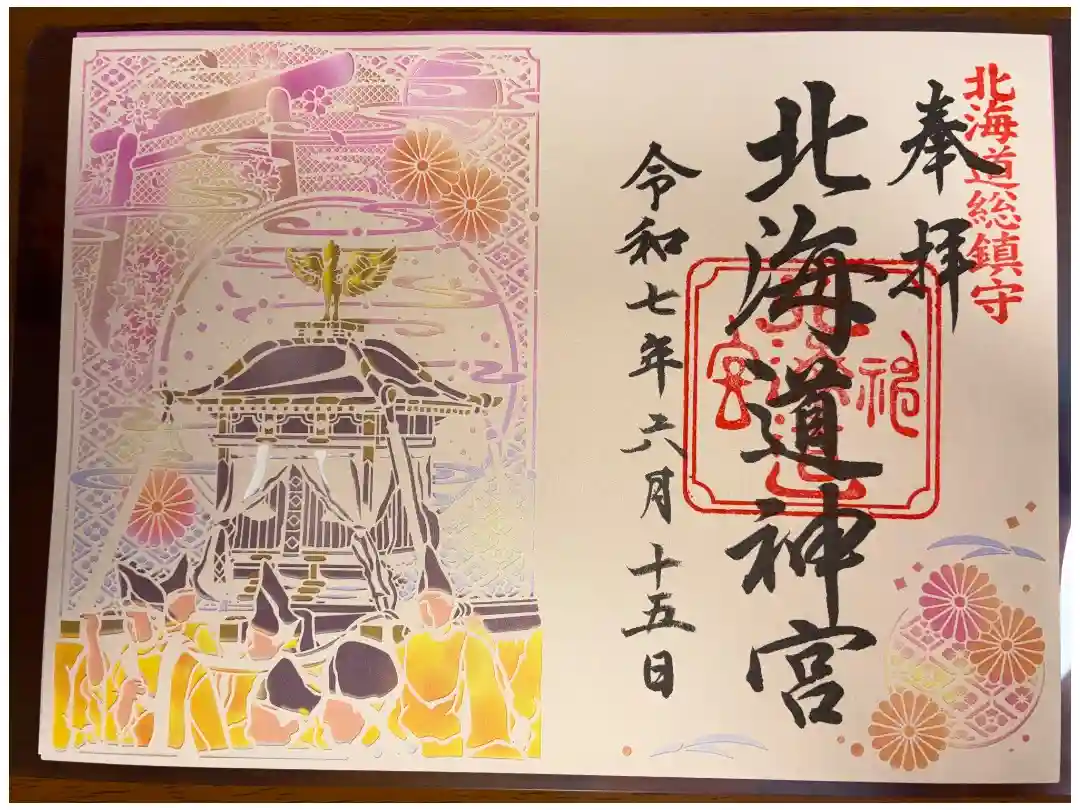 北海道総鎮守
奉拝
北海道神宮
令和七年六月十五日